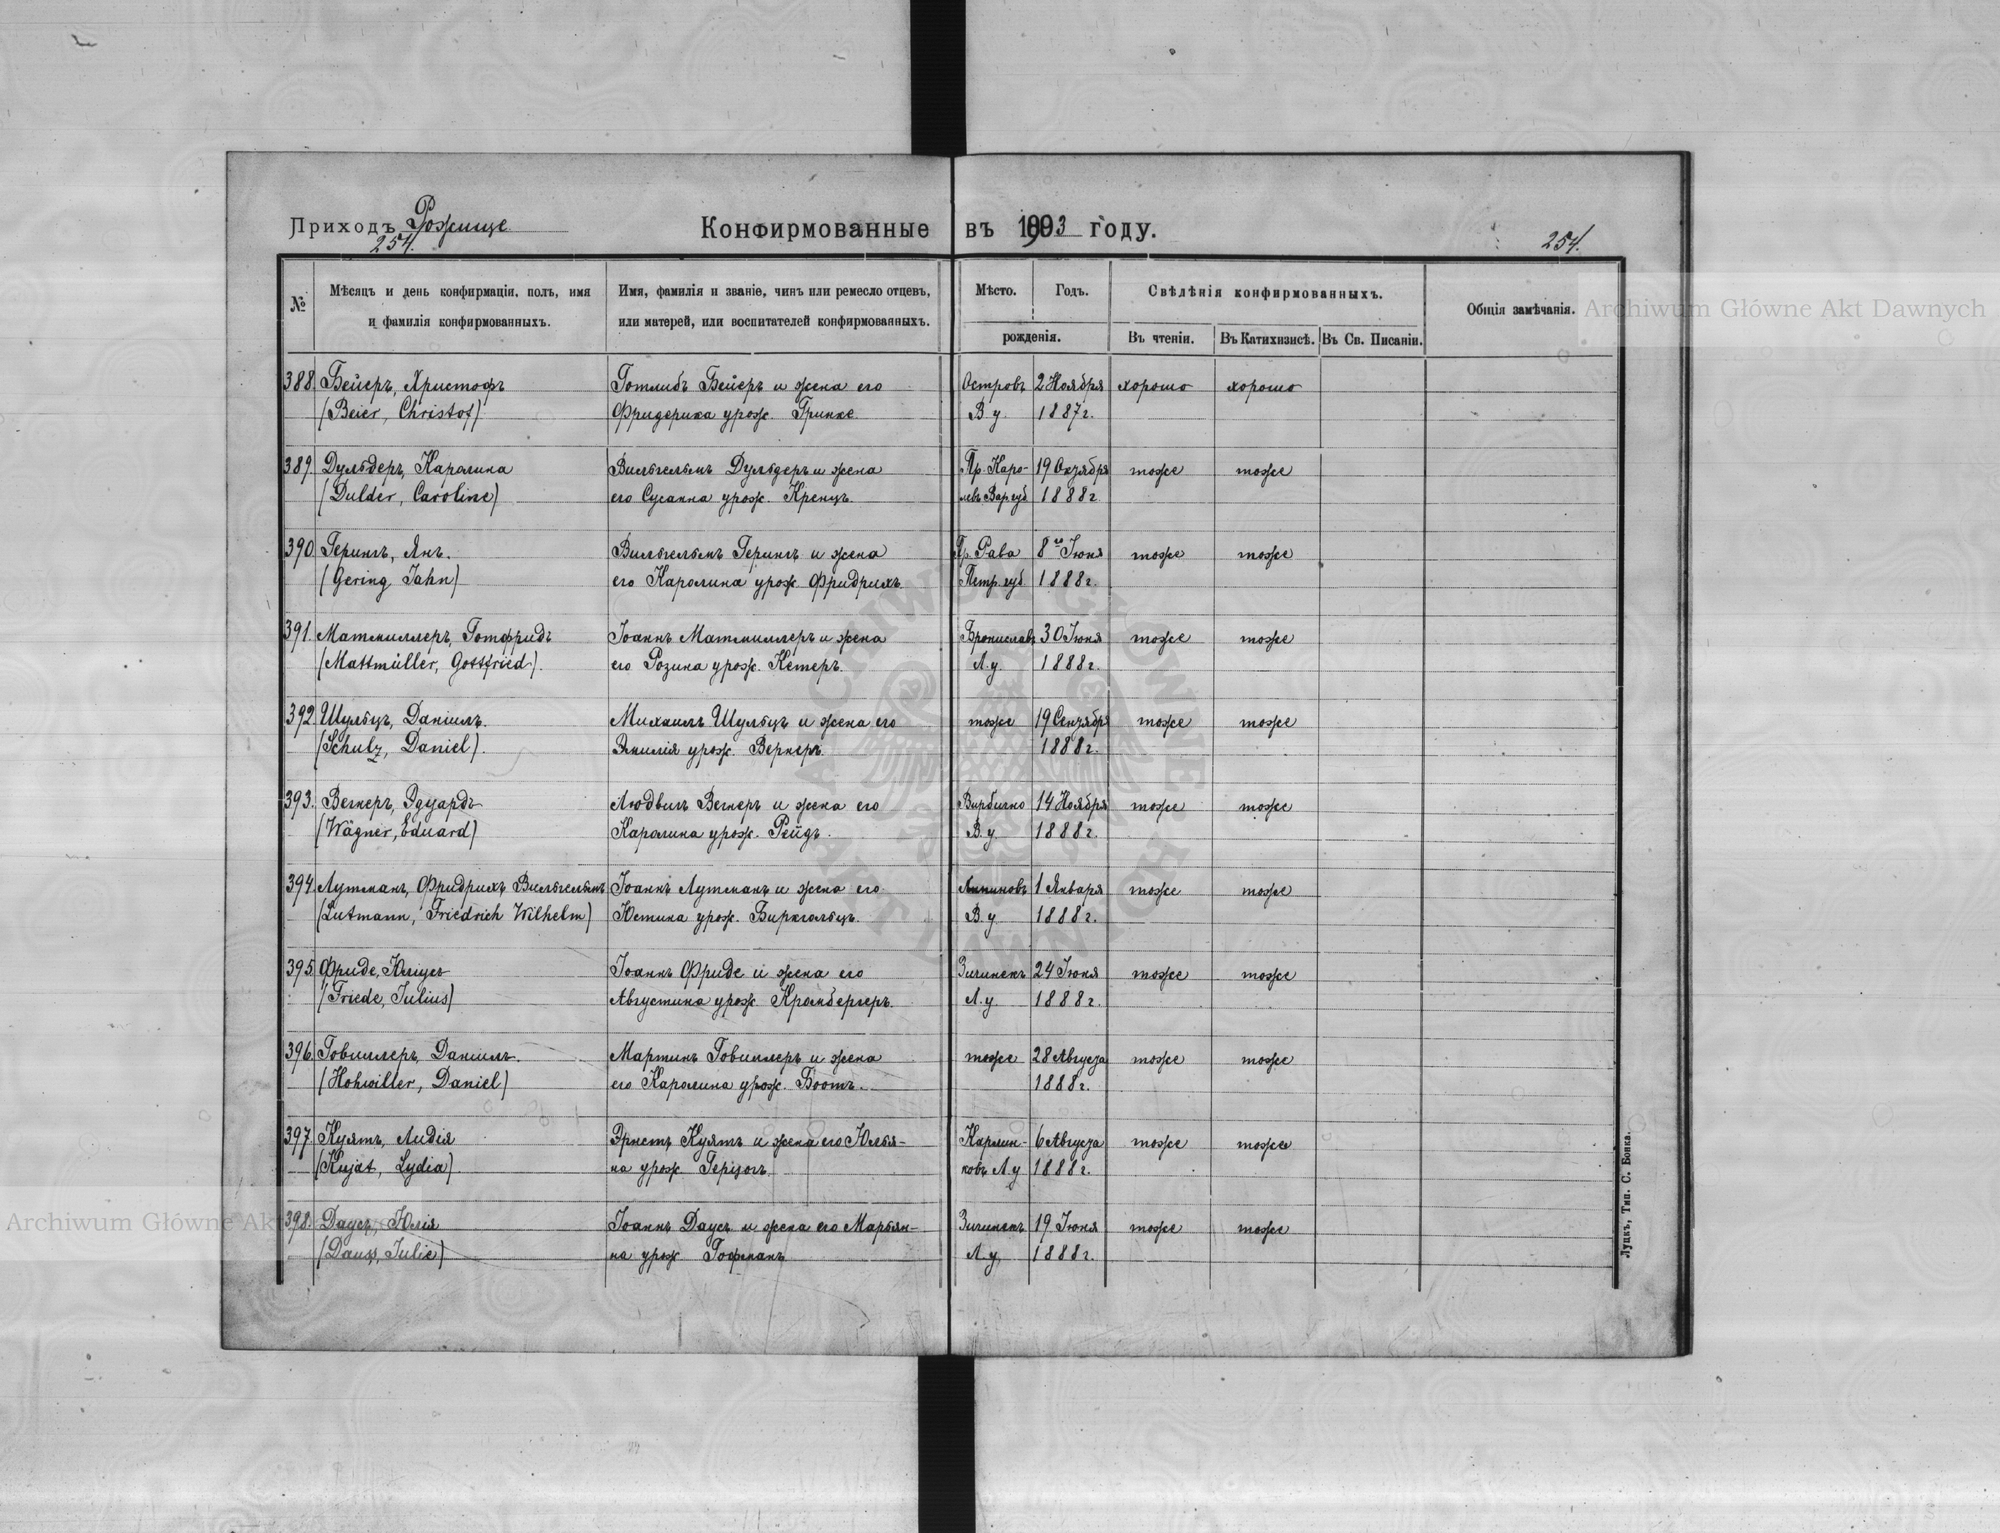 Приходъ Рожище
254.
Конфирмованные въ 1903 году.
254.
№
Мѣсяцъ и день конфирмаціи, полъ, имя
и фамилія конфирмованныхъ.
Имя, фамилія и званіе, чинъ или ремесло отцевъ,
или матерей, или воспитателей конфирмованныхъ.
Мѣсто. Годъ.
рожденія.
Свѣдѣнія конфирмованныхъ.
Въ чтеніи. Въ Катихизисѣ. Въ Св. Писаніи.
Общія замѣчанія.
388. Бейеръ, Христофъ Готлибъ Бейеръ и жена его Островъ 2 Ноября хорошо хорошо
(Beier, Christof) Фридерика урож. Гринке. В. у. 1887 г.
389. Дульдеръ, Каролина Вильгельмъ Дульдеръ и жена Пр. Каро- 19 Октября тоже тоже
(Dulder, Caroline) его Сусанна урож. Кренцъ. левъ Вар губ 1888 г.
390. Герингъ, Янъ. Вильгельмъ Герингъ и жена Гр. Рава 8го Іюня тоже тоже
(Gering, Jahn) его Каролина урож. Фридрихъ. Петр. губ. 1888 г.
391. Матмиллеръ, Готфридъ Іоаннъ Матмиллеръ и жена Брониславъ 30 Іюня тоже тоже
(Mattmüller, Gottfried). его Розина урож. Кемеръ. Л. у. 1888 г.
392. Шульцъ, Даніилъ. Михаилъ Шульцъ и жена его тоже 19 Сентября тоже тоже
(Schulz, Daniel). Эмилія урож. Вернеръ. 1888 г.
393. Вегнеръ, Эдуардъ Людвигъ Вегнеръ и жена его Вирбично 14 Ноября тоже тоже
(Wägner, Eduard) Каролина урож. Рейдъ. В. у. 1888 г.
394. Лутманъ, Фридрихъ Вильгельмъ Іоаннъ Лутманъ и жена его Липиновъ 1 Января тоже тоже
(Lutmann, Friedrich Wilhelm) Юстина урож. Биркгольцъ. В. у. 1888 г.
395. Фриде, Юліусъ Іоаннъ Фриде и жена его 24 Іюня тоже тоже
(Friede, Julius) Августина урож. Кромбергеръ. Л. у. 1888 г.
396. Говиллеръ, Даніилъ. Мартинъ Говиллеръ и жена тоже 28 Августа тоже тоже
(Hohwiller, Daniel) его Каролина урож. Боотъ. 1888 г.
397. Куятъ, Лидія Эрнстъ Куятъ и жена его Юлья- Карлин- 6 Августа тоже тоже
(Kujat, Lydia) на урож. Герцогъ. ковъ Л. у 1888 г.
398. Даусъ, Юлія Іоаннъ Даусъ и жена его Марьян- 19 Іюня тоже тоже
(Dauss, Julie) на урож. Гофманъ. Л. у. 1888 г.
Луцкъ, Тип. С. Бонка.
Archiwum Główne Akt Dawnych
Archiwum Główne Akt
ARCHIWUM GŁÓWNE AKT DAWNYCH